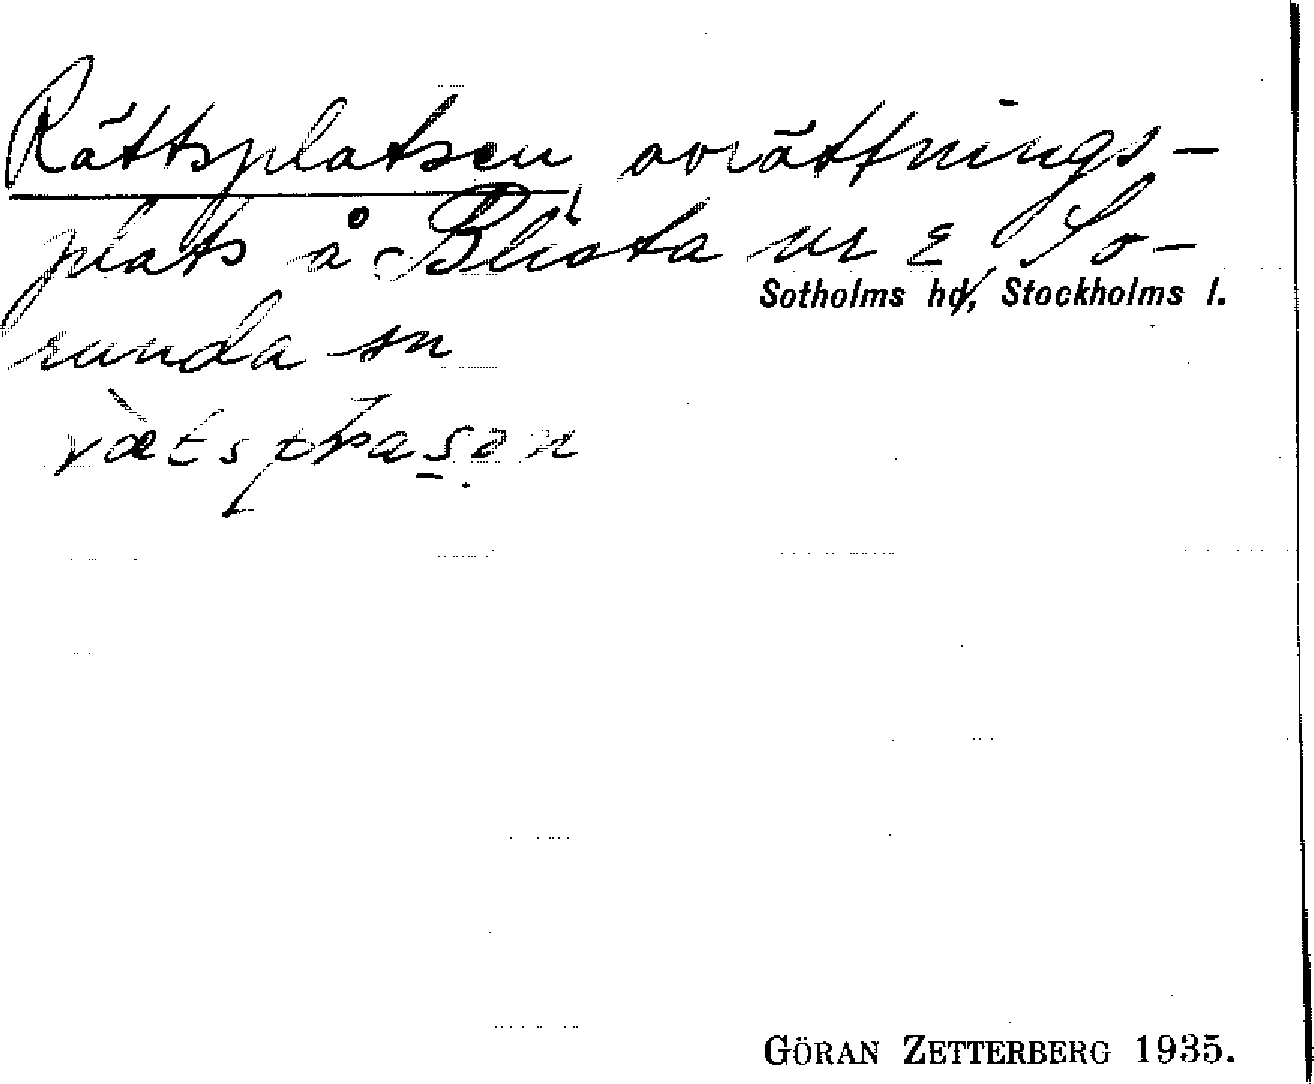 Rättsplatsen, avrättnings-
plats å Blista nr 2, So-
Sotholms hd, Stockholms l.
runda sn
GÖRAN ZETTERBERG 1935.